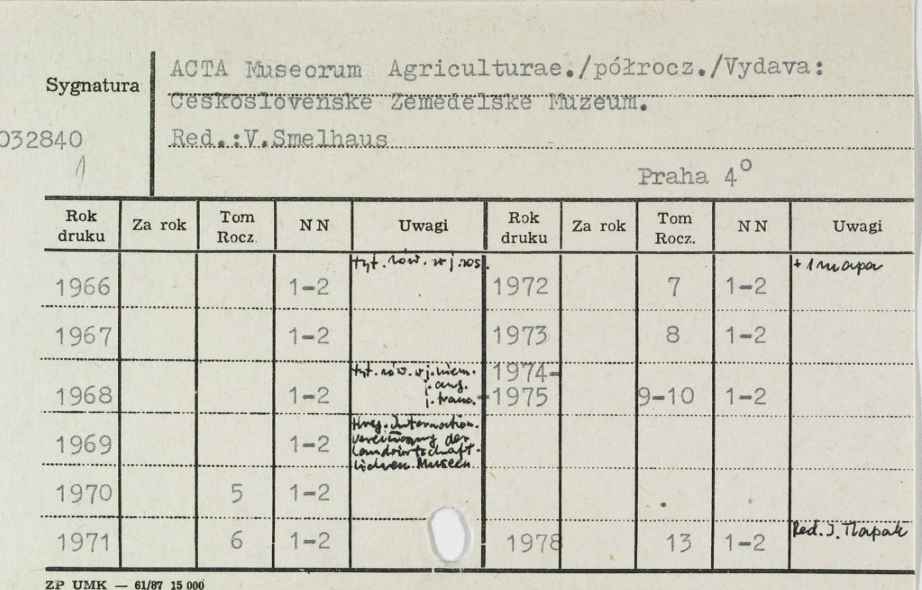 Sygnatura
032840
1
ACTA Museorum Agriculturae./półrocz./Vydava:
Ceskoslovenske Zemedelske Muzeum.
Red.:V.Smelhaus
Praha 4°
Rok druku Za rok Tom Rocz. NN Uwagi Rok druku Za rok Tom Rocz. NN Uwagi
1966 1-2 tyt. rów. w j. ros. 1972 7 1-2 + 1 mapa
1967 1-2 1973 8 1-2
1968 1-2 tyt. rów. w j. niem. j. ang. j. franc. 1974-1975 9-10 1-2
1969 1-2 Hrsg. Internation. vereinigung der Landwirtschaftlichen Museen
1970 5 1-2
1971 6 1-2 1978 13 1-2 Red. J. Tlapak
ZP UMK — 61/87 15 000